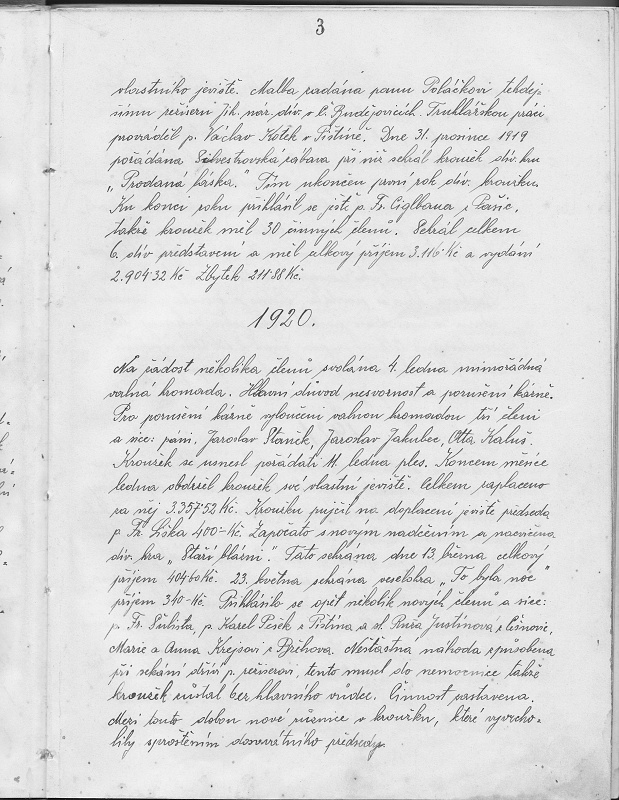 3
vlastního jeviště. Malba zadána panu Poláčkovi tehdej-
šímu režiseru Jih. nár. div. v Č. Budějovicích. Truhlářskou práci
prováděl p. Václav Kotek v Pištíně. Dne 31. prosince 1919
pořádána Silvestrovská zábava při níž sehrál kroužek div. hru
„Prodaná láska." Tím ukončen první rok div. kroužku.
Ku konci roku přihlásil se ještě p. Fr. Ciglbauer z Pašic,
takže kroužek měl 30 činných členů. Sehrál celkem
6. div. představení a měl celkový příjem 3.116·Kč a vydání
2.904·32 Kč Zbytek 211·88 Kč.
1920.
Na žádost několika členů svolána 4. ledna mimořádná
valná hromada. Hlavní důvod nesvornost a porušení kázně.
Pro porušení kázně vyloučeni valnou hromadou tři členi
a sice: páni, Jaroslav Staněk, Jaroslav Jakubec, Otta Kaluš.
Kroužek se usnesl pořádati 11. ledna ples. Koncem měsíce
ledna obdržel kroužek své vlastní jeviště. Celkem zaplaceno
za něj 3.357·52 Kč. Kroužku půjčil na doplacení jeviště předseda
p. Fr. Liška 400=Kč. Započato s novým nadšením a nacvičena
div. hra „Staří blázni." Tato sehrána dne 13. března celkový
příjem 404·60 Kč. 23. května sehrána veselohra „To byla noc"
příjem 340-Kč. Přihlásilo se opět několik nových členů a sice:
p. Fr. Šulista, p. Karel Pešek z Pištína a sl. Růža Justinová z Češnovic,
Marie a Anna Krejsovi z Břehova. Nešťastná náhoda způsobena
při sekání dříví p. režiserovi, tento musel do nemocnice takže
kroužek zůstal bez hlavního vůdce. Činnost zastavena.
Mezi touto dobou nové různice v kroužku, které vyvrcho-
lily sproštěním dosavadního předsedy.